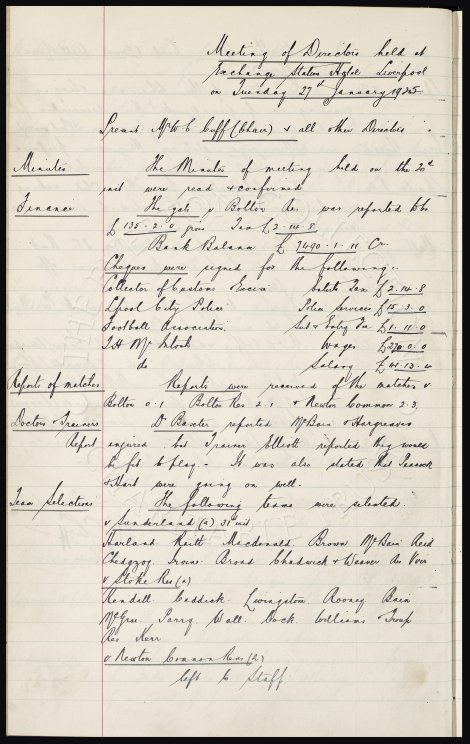 Meeting of Directors held at
Exchange Station Hotel Liverpool
on Tuesday 27th January 1925
Present Mr W C Cuff (Chair) & all other Directors
Minutes
The Minutes of meeting held on the 20th
inst were read & confirmed
Finance
The gate v Bolton Res was reported to be
£135-2-0 gross Tax £2-14-8
Bank Balance £7490-1-11 Cr.
Cheques were signed for the following:-
Collector of Customs & Excise Tax £2-14-8
Lpool City Police Police Services £15-3-0
Football Association. Sub & Entry Fee £1-11-0
T.H. McIntosh Wages £270-0-0
do Salary £41-13-4
Reports of matches
Reports were received of the matches v
Bolton 0.1 Bolton Res 2.1 & Newton Common 2.3
Doctors & Trainers
Report
Dr Baxter reported McBain & Hargreaves
injured but Trainer Elliott reported they would
be fit to play. It was also stated that Peacock
& Hart were going on well.
Team Selections
The following teams were selected.
v Sunderland (a) 31st inst
Harland Raitt Macdonald Brown McBain Reid
Chedgzoy Irvine Broad Chadwick & Weaver Res
v Stoke Res (a)
Kendall Caddick Livingstone Rooney Bain
Parry Wall Cock Williams & Troup
Res Kerr
v Newton Common Res (2)
left to Staff